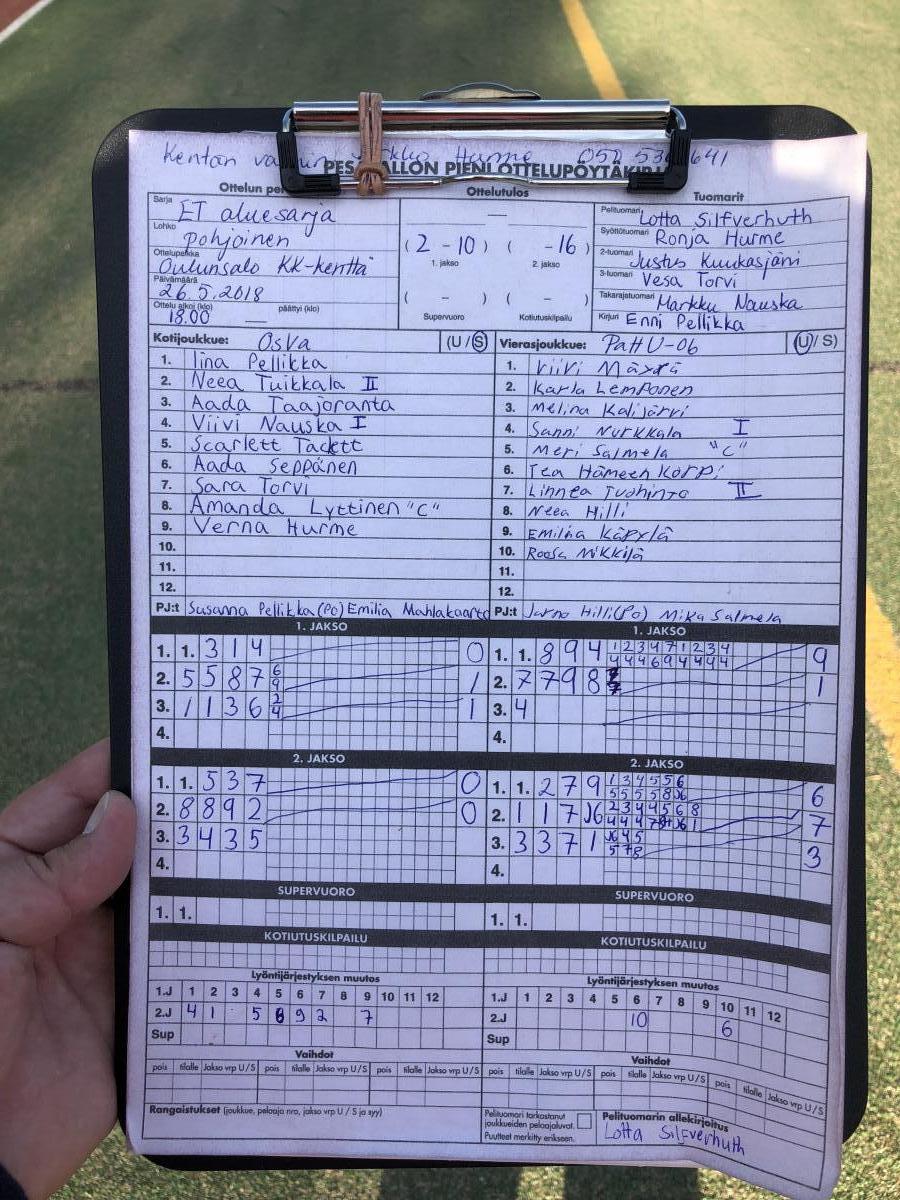 Kentän Hurme 050
PESÄPALLON PIENI OTTELUPÖYTÄKIRJA
Ottelun Ottelutulos Tuomarit
Sarja ET aluesarja
Lohko Pohjoinen
Ottelupaikka Oulunsalo KK-kenttä
Päivämäärä 26.5.2018
Ottelu alkoi (klo) 18.00 päättyi (klo)
(2 - 10) ( -16)
1. jakso 2. jakso
( - ) ( - )
Supervuoro Kotiutuskilpailu
Pelituomari Lotta Silfverhuth
Syöttötuomari Ronja Hurme
2-tuomari Justus Kuukasjärvi
3-tuomari Vesa Torvi
Takarajatuomari Markku Nauska
Kirjuri Enni Pellikka
Kotijoukkue: OsVa (U/S)
1. Iina Pellikka
2. Neea Tuikkala II
3. Aada Taajoranta
4. Viivi Nauska I
5. Scarlett Tackett
6. Aada Seppänen
7. Sara Torvi
8. Amanda Lyttinen "C"
9. Verna Hurme
10.
11.
12.
PJ:t Susanna Pellikka (Po) Emilia Mahlakaarto
Vierasjoukkue: PattU-06 (U/S)
1. Viivi Mäyrä
2. Karla Lemponen
3. Melina Kalijärvi
4. Sanni Nurkkala I
5. Meri Salmela "C"
6. Tea Hämeenkorpi
7. Linnea Tuohinto II
8. Neea Hilli
9. Emilia Käpylä
10. Roosa Mikkilä
11.
12.
PJ:t Jarno Hilli (Po) Mika Salmela
1. JAKSO
1. 1. 3 1 4 0
2. 5 5 8 7 6 9 1
3. 1 1 3 6 2 4 1
4.
1. JAKSO
1. 1. 8 9 4 1 2 3 4 7 1 2 3 4 9
4 4 4 6 9 4 4 4 4
2. 7 7 9 8 1
3. 4
4.
2. JAKSO
1. 1. 5 3 7 0
2. 8 8 9 2 0
3. 3 4 3 5
4.
2. JAKSO
1. 1. 2 7 9 1 3 4 5 5 6 6
5 5 5 5 8 J6
2. 1 1 7 J6 2 3 4 4 5 6 8 7
4 4 4 7 J6 1
3. 3 3 7 1 J6 4 5 3
5 7 8
4.
SUPERVUORO
1. 1.
SUPERVUORO
1. 1.
KOTIUTUSKILPAILU
KOTIUTUSKILPAILU
Lyöntijärjestyksen muutos
1.J 1 2 3 4 5 6 7 8 9 10 11 12
2.J 4 1 5 8 9 2 7
Sup
Lyöntijärjestyksen muutos
1.J 1 2 3 4 5 6 7 8 9 10 11 12
2.J 10 6
Sup
Vaihdot
pois tilalle Jakso vrp U/S pois tilalle Jakso vrp U/S pois tilalle Jakso vrp U/S
Vaihdot
pois tilalle Jakso vrp U/S pois tilalle Jakso vrp U/S pois tilalle Jakso vrp U/S
Rangaistukset (joukkue, pelaaja nro, jakso vrp U / S ja syy)
Pelituomari tarkastanut
joukkueiden pelaajaluvat.
Puutteet merkitty erikseen.
Pelituomarin allekirjoitus
Lotta Silfverhuth